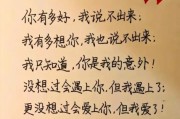 你有多好，我说不出来；
我有多想你，我也说不出来；
我只知道，你是我的意外！
没想过会遇上你，但我遇上了；
更没想过会爱上你，但我爱了！